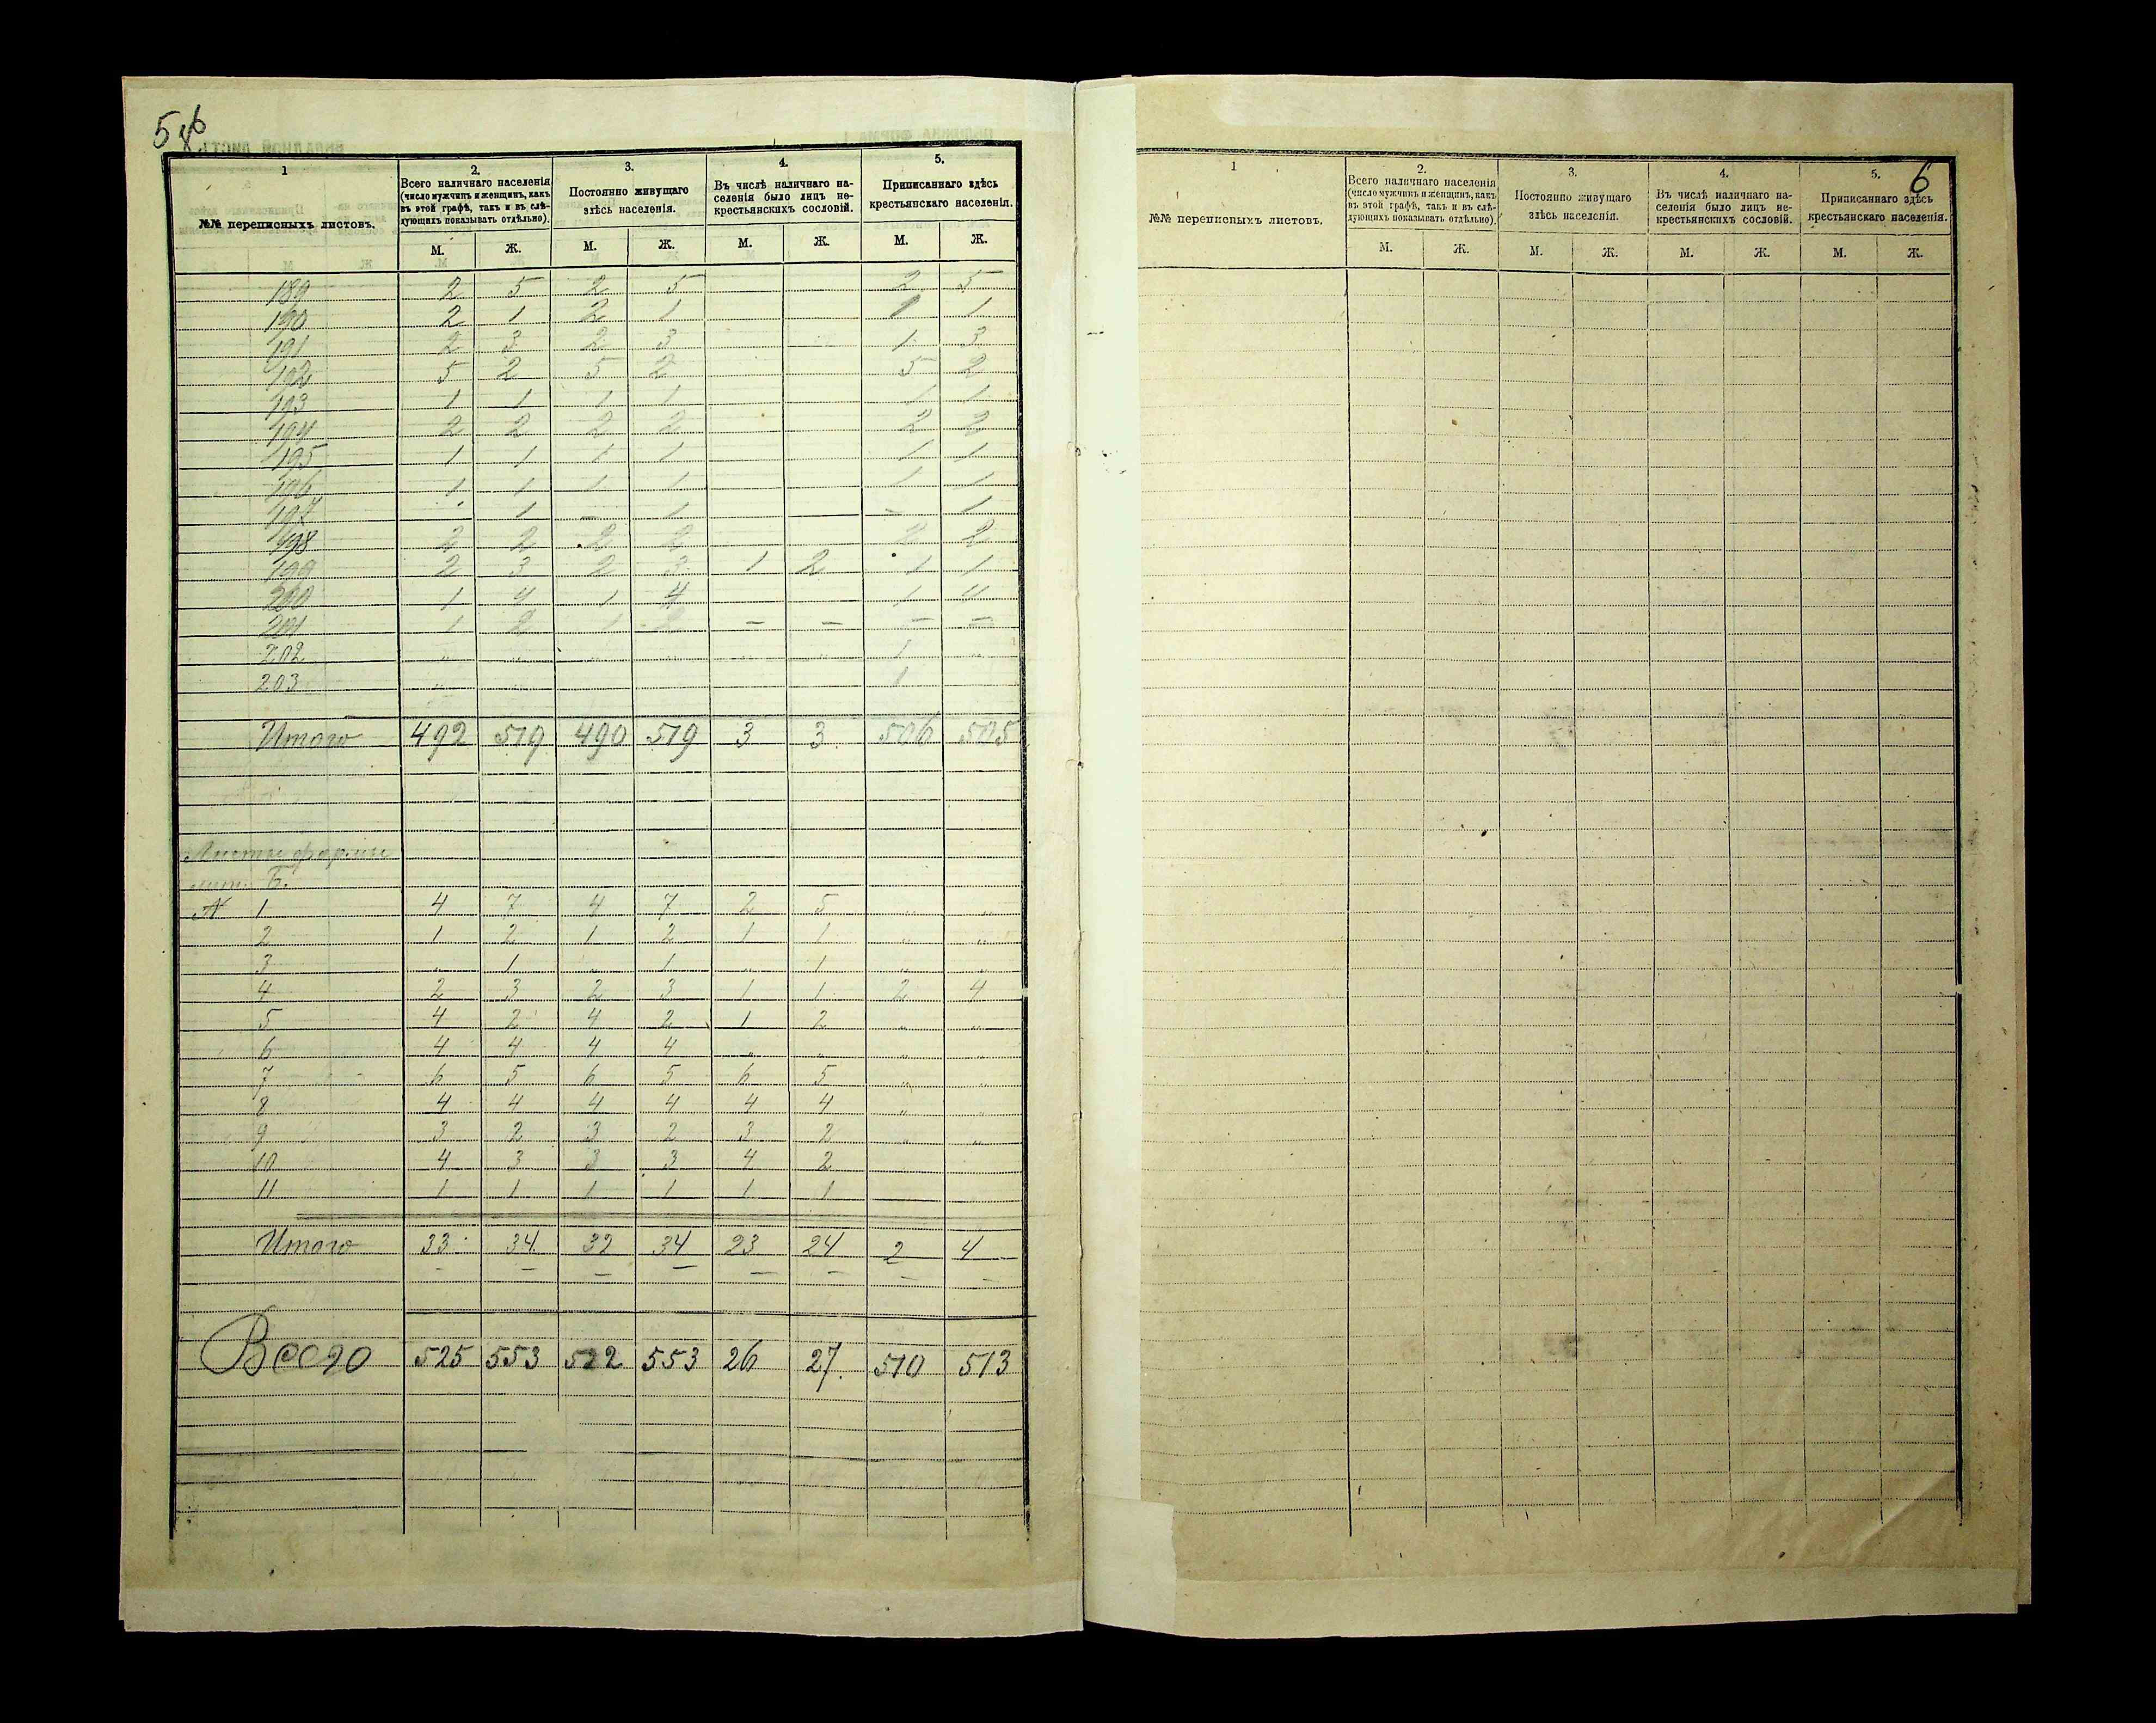 5
1
2.
3.
4.
5.
№№ переписныхъ листовъ.
Всего наличнаго населенія (число мужчинъ и женщинъ, какъ въ этой графѣ, такъ и въ слѣдующихъ показывать отдѣльно).
Постоянно живущаго здѣсь населенія.
Въ числѣ наличнаго населенія было лицъ не-крестьянскихъ сословій.
Приписаннаго здѣсь крестьянскаго населенія.
М. Ж. М. Ж. М. Ж. М. Ж.
189 2 5 2 5 2 5
190 2 1 2 1 1 1
191 2 3 2 3 1 3
192 5 2 5 2 5 2
193 1 1 1 1 1 1
194 2 2 2 2 2 2
195 1 1 1 1 1 1
196 1 1 1 1 1 1
197 - 1 - 1 - 1
198 2 2 2 2 2 2
199 2 3 2 3 1 2 1 1
200 1 4 1 4 1 4
201 1 2 1 2 - - - -
202 „ „ „ „ „ „ 1 „
203 „ 1
Итого 492 519 490 519 3 3 506 505
Листы формы
лит. Б.
№ 1 4 7 4 7 2 5 „ „
2 1 2 1 2 1 1 „ „
3 „ 1 „ 1 „ 1 „ „
4 2 3 2 3 1 1 2 4
5 4 2 4 2 1 2 „ „
6 4 4 4 4 „ „ „ „
7 6 5 6 5 6 5 „ „
8 4 4 4 4 4 4 „ „
9 3 2 3 2 3 2 „ „
10 4 3 3 3 4 2
11 1 1 1 1 1 1
Итого 33 34 32 34 23 24 2 4
Всего 525 553 522 553 26 27. 510 513
6
1
2.
3.
4.
5.
№№ переписныхъ листовъ.
Всего наличнаго населенія (число мужчинъ и женщинъ, какъ въ этой графѣ, такъ и въ слѣдующихъ показывать отдѣльно).
Постоянно живущаго здѣсь населенія.
Въ числѣ наличнаго населенія было лицъ не-крестьянскихъ сословій.
Приписаннаго здѣсь крестьянскаго населенія.
М. Ж. М. Ж. М. Ж. М. Ж.